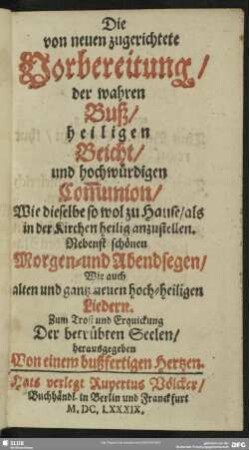 Die
von neuen zugerichtete
Vorbereitung/
der wahren
Buß/
heiligen
Beicht/
und hochwürdigen
Com̃union/
Wie dieselbe so wol zu Hause/als
in der Kirchen heilig anzustellen.
Nebenst schönen
Morgen-und Abendsegen/
Wie auch
alten und gantz neuen hoch-heiligen
Liedern.
Zum Trost und Erquickung
Der betrübten Seelen/
herausgegeben
Von einem bußfertigen Hertzen.
Hats verlegt Rupertus Völcker/
Buchhändl. in Berlin und Franckfurt
M, DC, LXXXIX.
SLUB